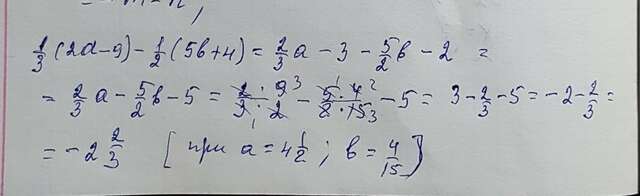 1/3 (2a-9) - 1/2 (5b+4) = 2/3 a - 3 - 5/2 b - 2 =
= 2/3 a - 5/2 b - 5 = 2·9³/3₁·2 - 5¹·4²/2·15₃ - 5 = 3 - 2/3 - 5 = -2 - 2/3 =
= -2 2/3 [при a = 4 1/2 ; b = 4/15]